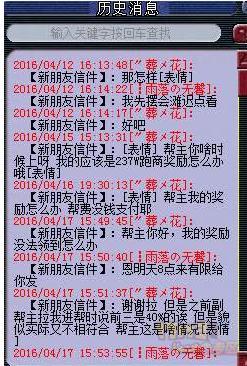 历史消息
输入关键字按回车查找
2016/04/12 16:13:48["葬メ花]:
【新朋友信件】：那怎样[表情]
2016/04/12 16:14:22[┇雨落の无馨]:
【新朋友信件】：我先摆会滩迟点看
2016/04/12 16:14:29["葬メ花]:
【新朋友信件】：好吧
2016/04/15 15:13:31["葬メ花]:
【新朋友信件】：[表情] 帮主你啥时
候上呀 我的应该是237W跑商奖励怎么办
哦[表情]
2016/04/16 19:30:13["葬メ花]:
【新朋友信件】：[表情] 帮主我的奖
励怎么办 帮费没钱支付耶
2016/04/17 15:49:45["葬メ花]:
【新朋友信件】：帮主你好，我的奖励
没法领到怎么办
2016/04/17 15:50:40[┇雨落の无馨]:
【新朋友信件】：恩明天8点来有限给
你发
2016/04/17 15:51:36["葬メ花]:
【新朋友信件】：谢谢拉 但是之前副
帮主拉我进帮时说前三是40%的诶 但是貌
似实际又不相符合 帮主这是啥情况[表情
]
2016/04/17 15:53:55[┇雨落の无馨]: